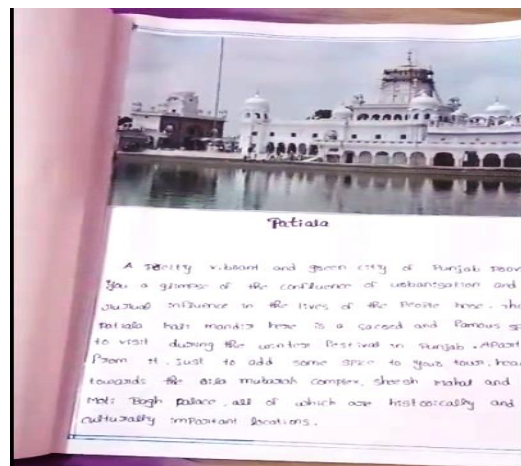 Patiala
A pretty vibrant and green city of Punjab
You a glimpse of the confluence of urbanisation and
influence in the lives of the People here.
Patiala kali mandir here is a sacred and famous
to visit during the winter Festival in Punjab. Apart
From it. Just to add some spice to your tour, head
towards the qila mubarak complex, sheesh mahal and
Moti Bagh Palace, all of which are historically and
culturally important locations.